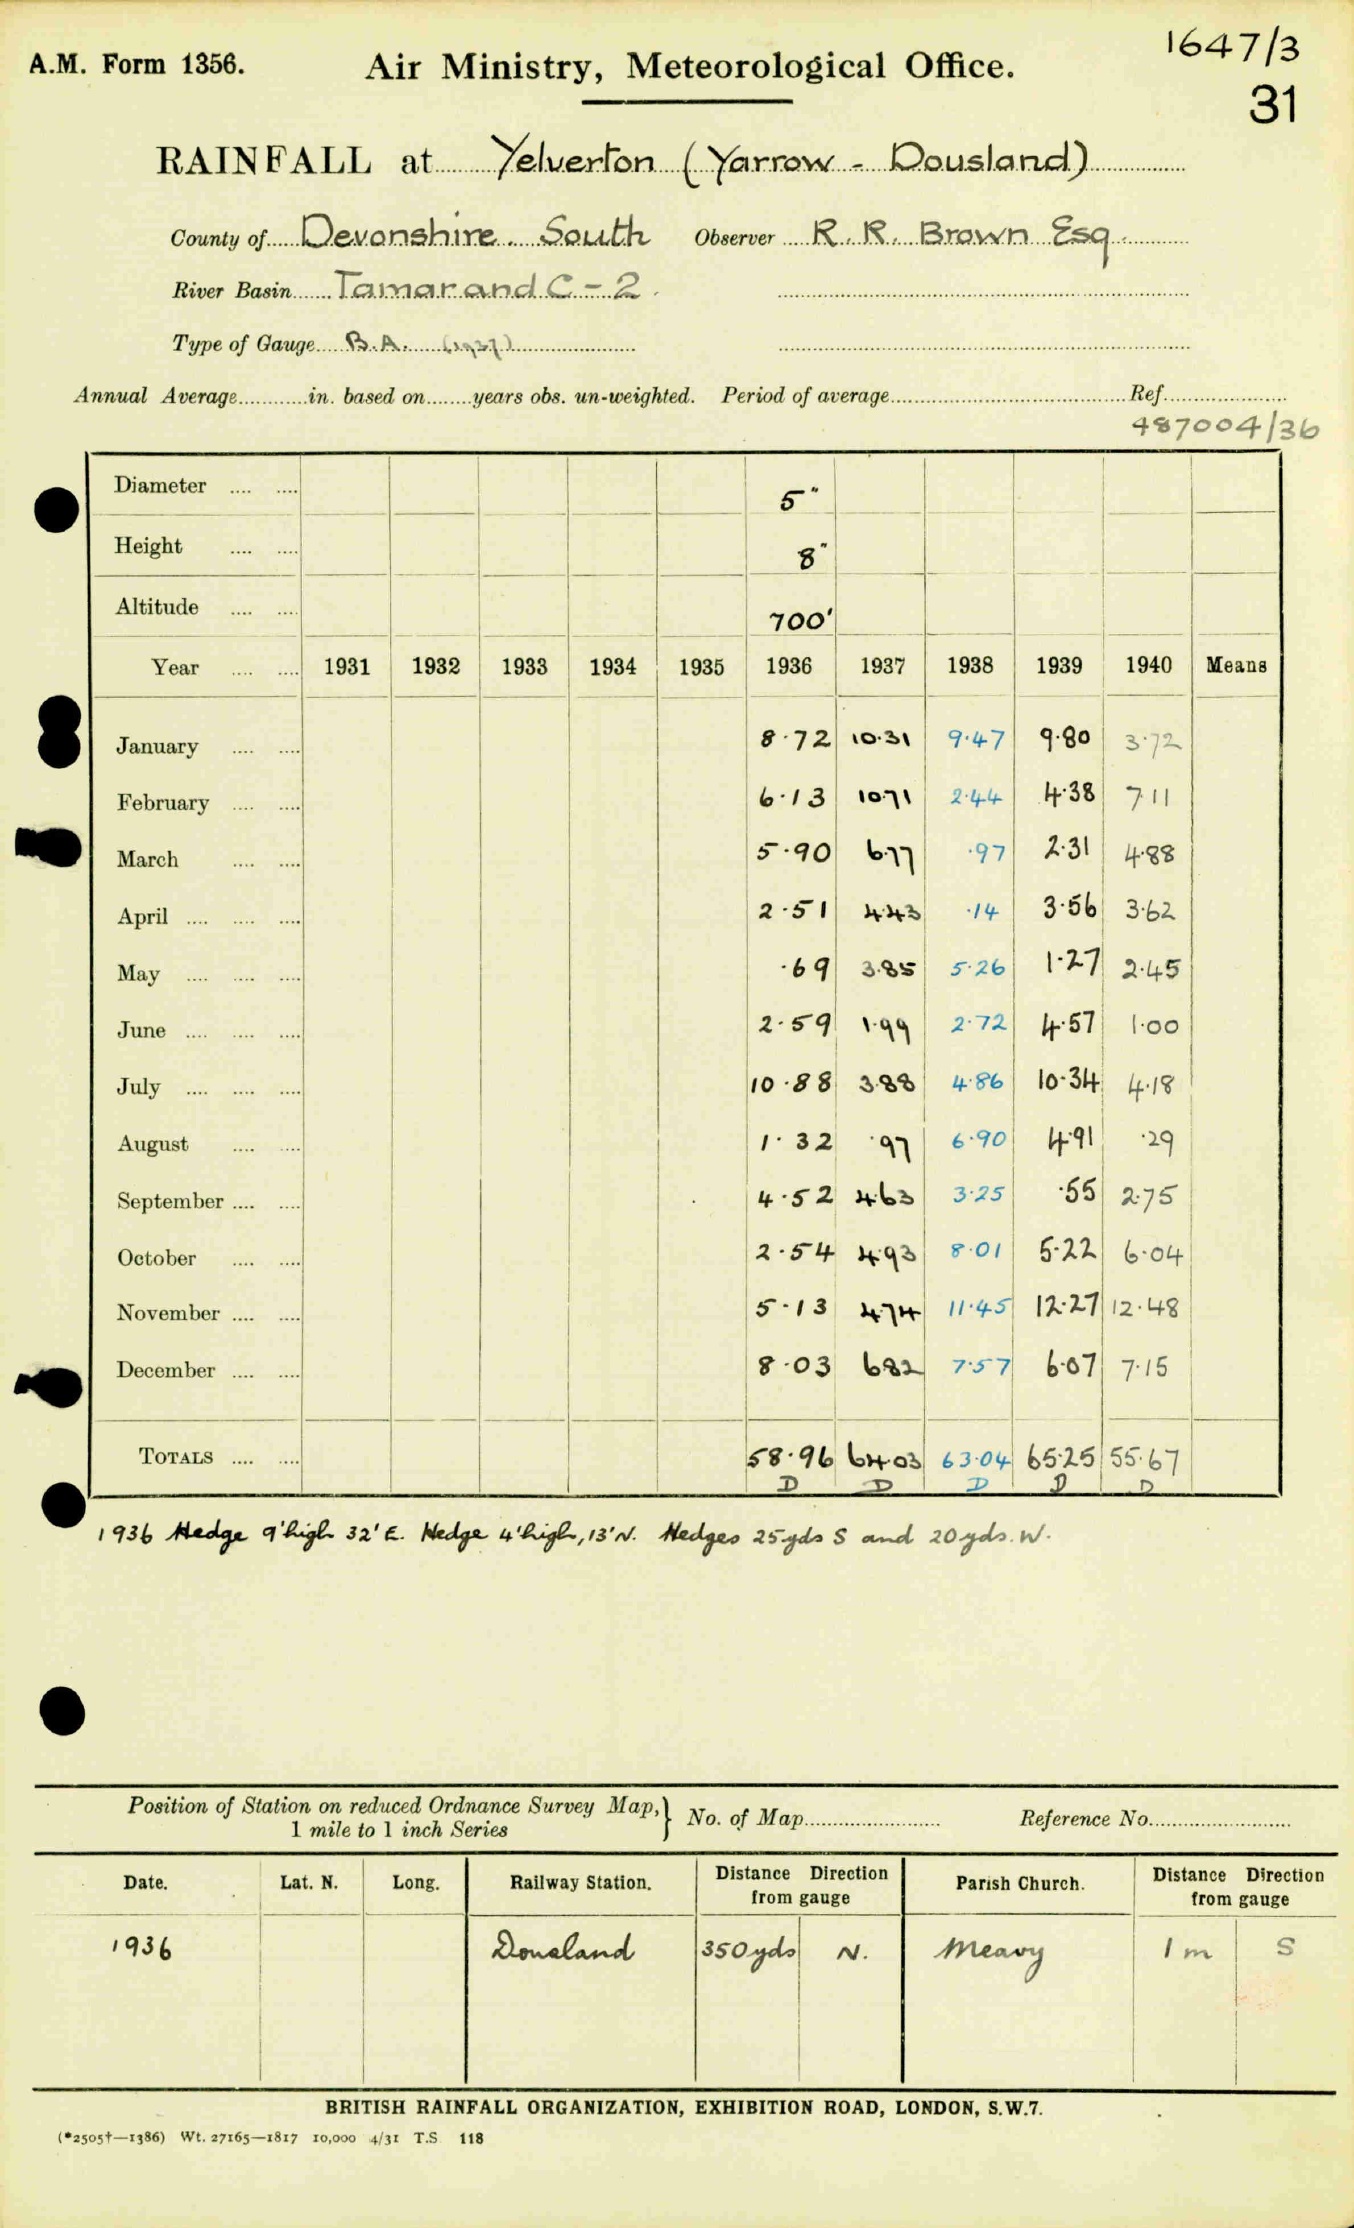 1647/3
A.M. Form 1356. Air Ministry, Meteorological Office.
31
RAINFALL at Yelverton (Yarrow - Dousland)
County of Devonshire South Observer R. R. Brown Esq.
River Basin Tamar and C - 2.
Type of Gauge B.A. (1937)
Annual Average in. based on years obs. un-weighted. Period of average Ref.
487004/36
Diameter 5"
Height 8"
Altitude 700'
Year 1931 1932 1933 1934 1935 1936 1937 1938 1939 1940 Means
January 8.72 10.31 9.47 9.80 3.72
February 6.13 10.71 2.44 4.38 7.11
March 5.90 6.77 .97 2.31 4.88
April 2.51 4.43 .14 3.56 3.62
May .69 3.85 5.26 1.27 2.45
June 2.59 1.99 2.72 4.57 1.00
July 10.88 3.88 4.86 10.34 4.18
August 1.32 .97 6.90 4.91 .29
September 4.52 4.63 3.25 .55 2.75
October 2.54 4.93 8.01 5.22 6.04
November 5.13 4.74 11.45 12.27 12.48
December 8.03 6.82 7.57 6.07 7.15
TOTALS 58.96 64.03 63.04 65.25 55.67
D D D D D
1936 Hedge 9' high 32' E. Hedge 4' high, 13' N. Hedges 25 yds S and 20 yds. W.
Position of Station on reduced Ordnance Survey Map, } No. of Map Reference No.
1 mile to 1 inch Series
Date. Lat. N. Long. Railway Station. Distance Direction from gauge Parish Church. Distance Direction from gauge
1936 Dousland 350 yds N. Meavy 1 m S
BRITISH RAINFALL ORGANIZATION, EXHIBITION ROAD, LONDON, S.W.7.
(*2505†—1386) Wt. 27165—1817 10,000 4/31 T.S 118